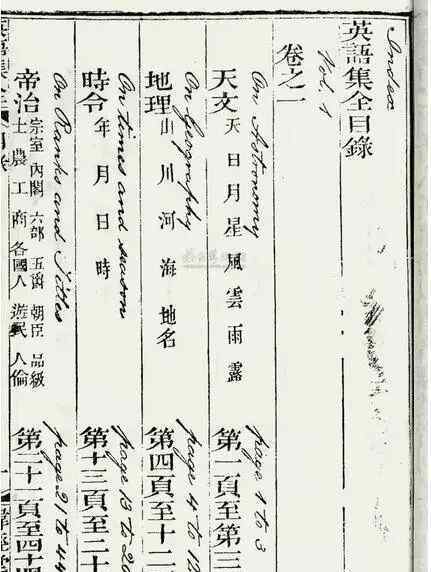 Index
英語集全目錄
Vol. 1
卷之一
On Astronomy
天文 天日月星風雲雨露
page 1 to 3
第一頁至第三
On Geography
地理 山川河海地名
page 4 to 12
第四頁至十二
On times and season
時令 年月日時
page 13 to 20
第十三頁至二十
On Ranks and Titles
帝治 宗室 內閣 六部 五爵 朝臣 品級
士農工商 各國人 遊民 人倫
page 21 to 44
第二十一頁至四十四